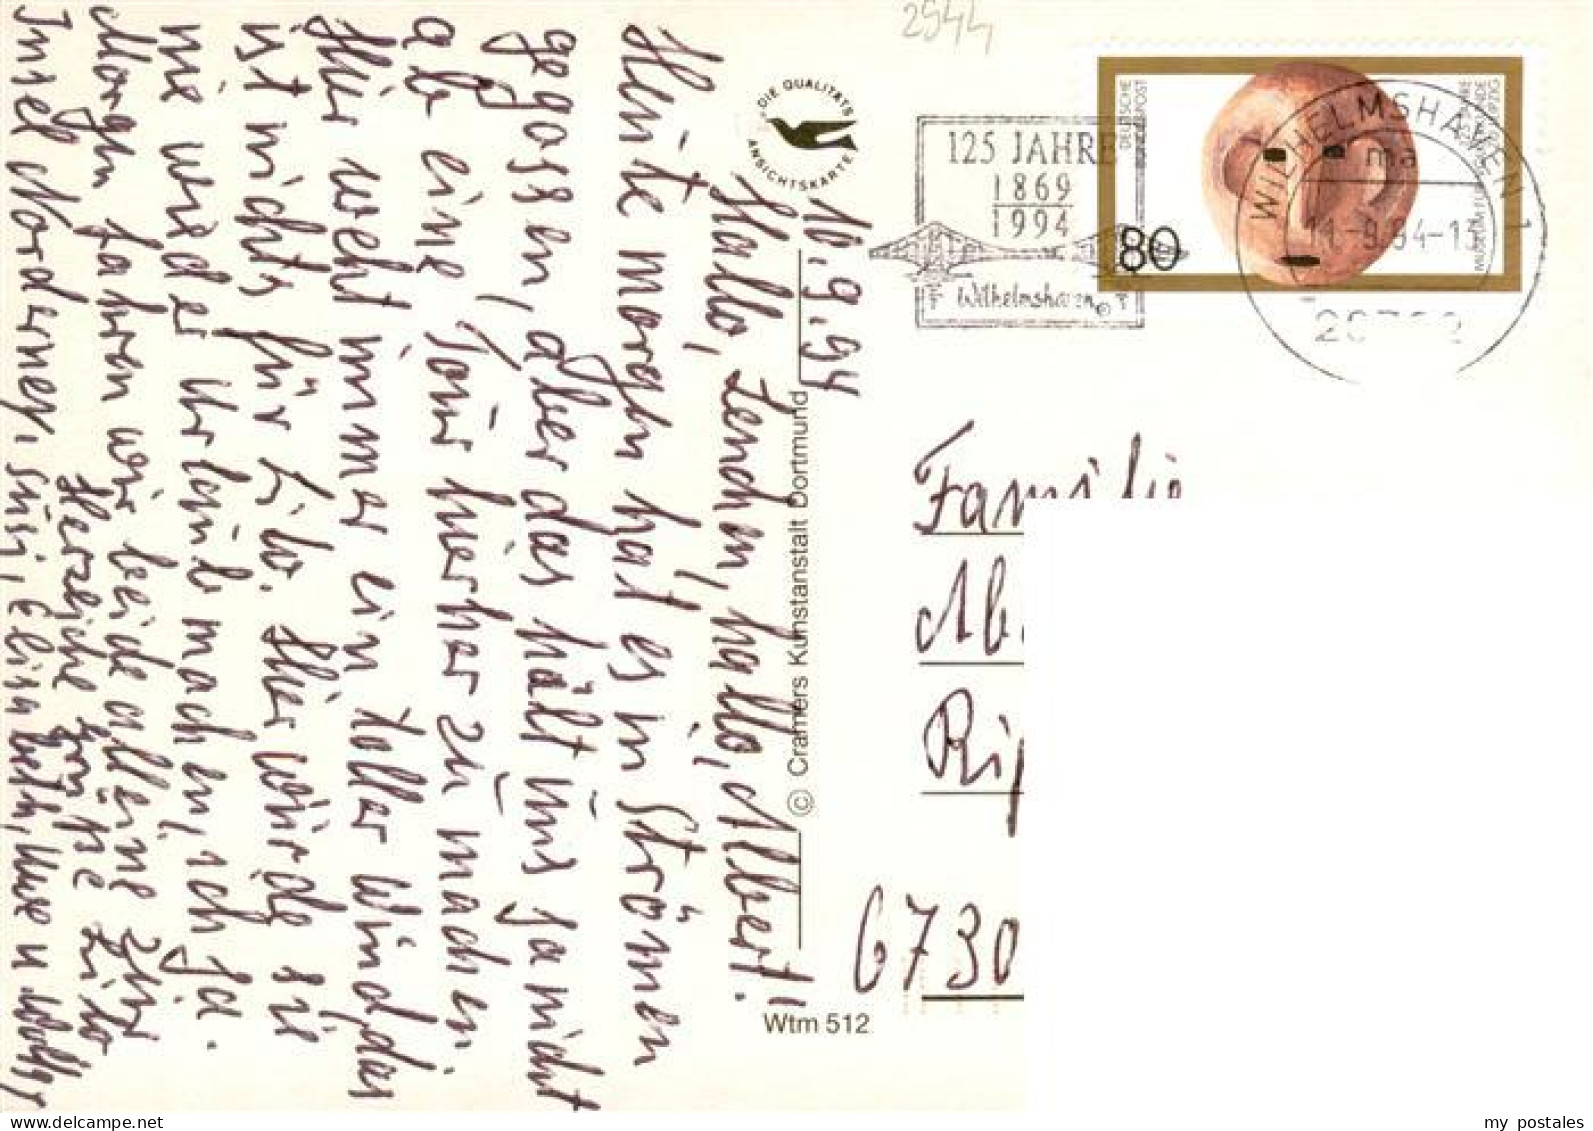 2944
10.9.94
Hallo, Lenchen, hallo, Albert!
Heute morgen hat es in Strömen
gegossen, aber das hält uns ja nicht
ab eine Tour hierher zu machen.
Hier weht immer ein toller Wind, das
ist nichts für Lilo. Hier würde sie
nie wieder Urlaub machen, ich ja.
Morgen fahren wir beide alleine zur
Insel Norderney.
Herzliche Grüße Lilo
Susi, Elisabeth, Uwe u Wolfg
DIE QUALITÄTS
ANSICHTSKARTE
© Cramers Kunstanstalt Dortmund
Wtm 512
125 JAHRE
1869
1994
Wilhelmshaven
DEUTSCHE
BUNDESPOST
80
WILHELMSHAVEN 1
ma
11.-9.94-13
Familie
Ab
Rip
6730
my postales
www.delcampe.net